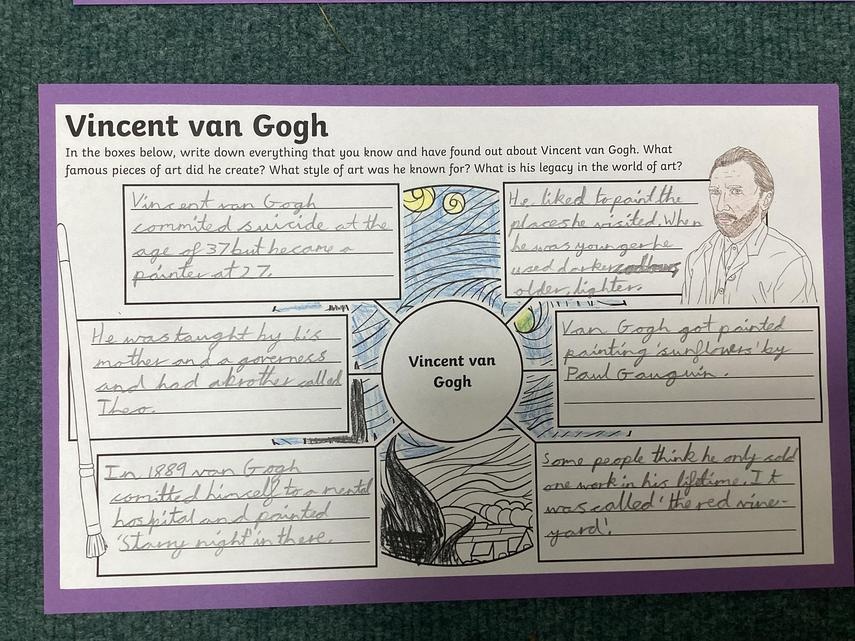 Vincent van Gogh
In the boxes below, write down everything that you know and have found out about Vincent van Gogh. What
famous pieces of art did he create? What style of art was he known for? What is his legacy in the world of art?
Vincent van Gogh
commited suicide at the
age of 37 but became a
painter at 27.
He liked to paint the
places he visited. When
he was younger he
used darker
older, lighter.
He was taught by his
mother and a governess
and had a brother called
Theo.
Vincent van
Gogh
Van Gogh got painted
painting 'sunflowers' by
Paul Gauguin.
In 1889 van Gogh
comitted himself to a mental
hospital and painted
'Starry night' in there.
Some people think he only sold
one work in his lifetime. It
was called 'the red vine-
yard'.